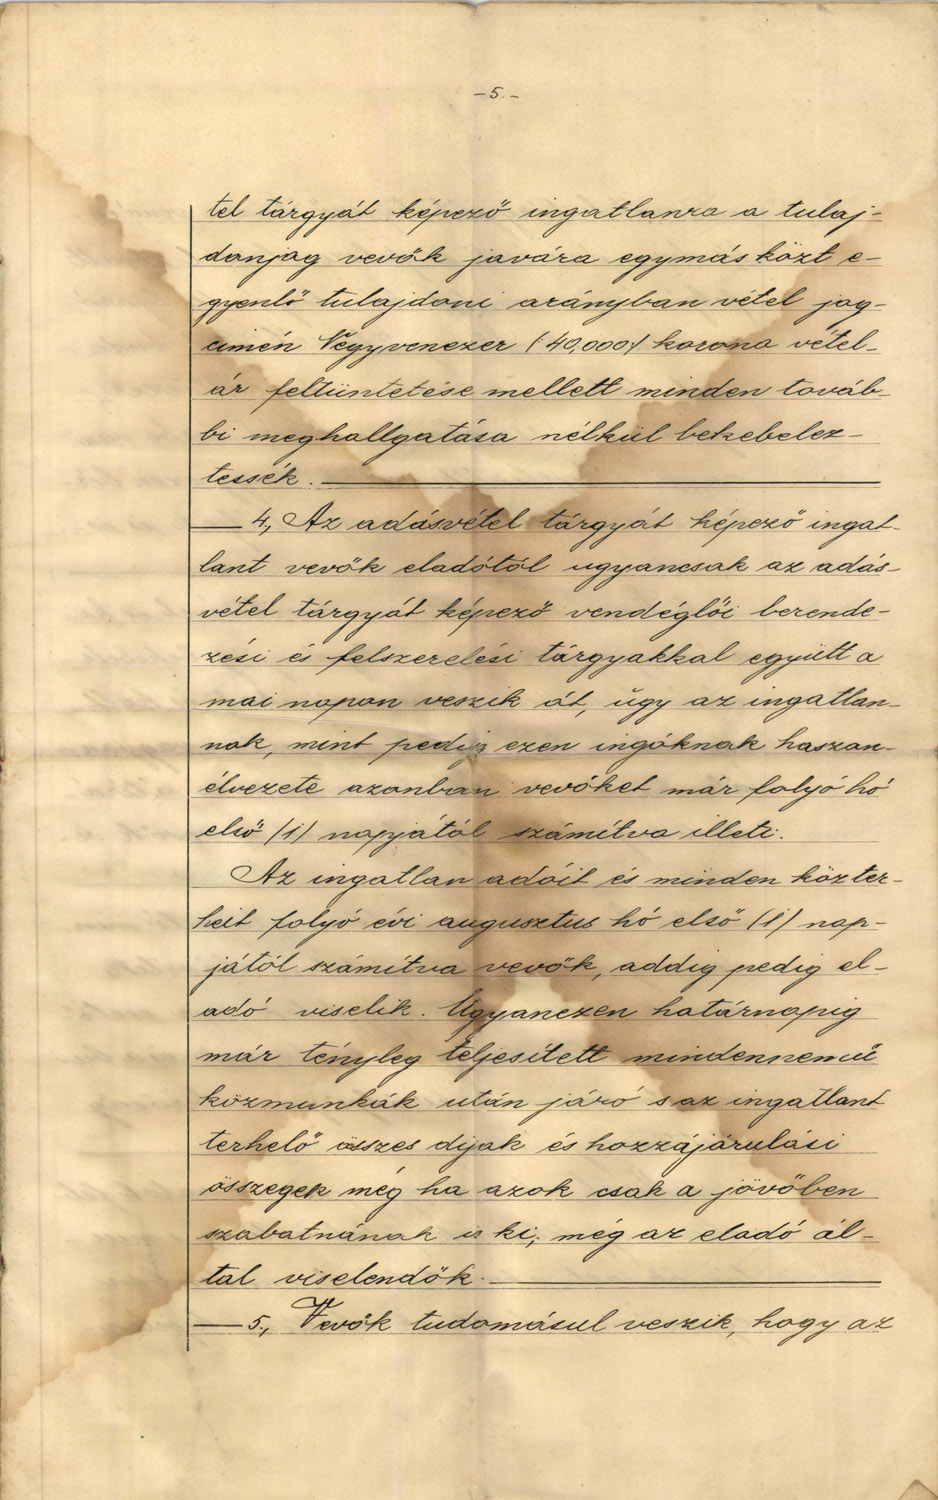 -5.-
tel tárgyát képező ingatlanra a tulaj-
donjog vevők javára egymás közt e-
gyenlő tulajdoni arányban vétel jog-
címén Negyvenezer (:40,000:) korona vétel-
ár feltüntetése mellett minden továb-
bi meghallgatása nélkül bekebelez-
tessék.
4., Az adásvétel tárgyát képező ingat-
lant vevők eladótól ugyancsak az adás-
vétel tárgyát képező vendéglői berende-
zési és felszerelési tárgyakkal együtt a
mai napon veszik át, úgy az ingatlan-
nak, mint pedig ezen ingóknak haszon-
élvezete azonban vevőket már folyó hó
első /1/ napjától számítva illeti.
Az ingatlan adóit és minden közter-
heit folyó évi augusztus hó első /1/ nap-
jától számítva vevők, addig pedig el-
adó viselik. Ugyanezen határnapig
már tényleg teljesített mindennemű
közmunkák után járó s az ingatlant
terhelő összes díjak és hozzájárulási
összegek még ha azok csak a jövőben
szabatnának is ki, még az eladó ál-
tal viselendők.
5., Vevők tudomásul veszik, hogy az